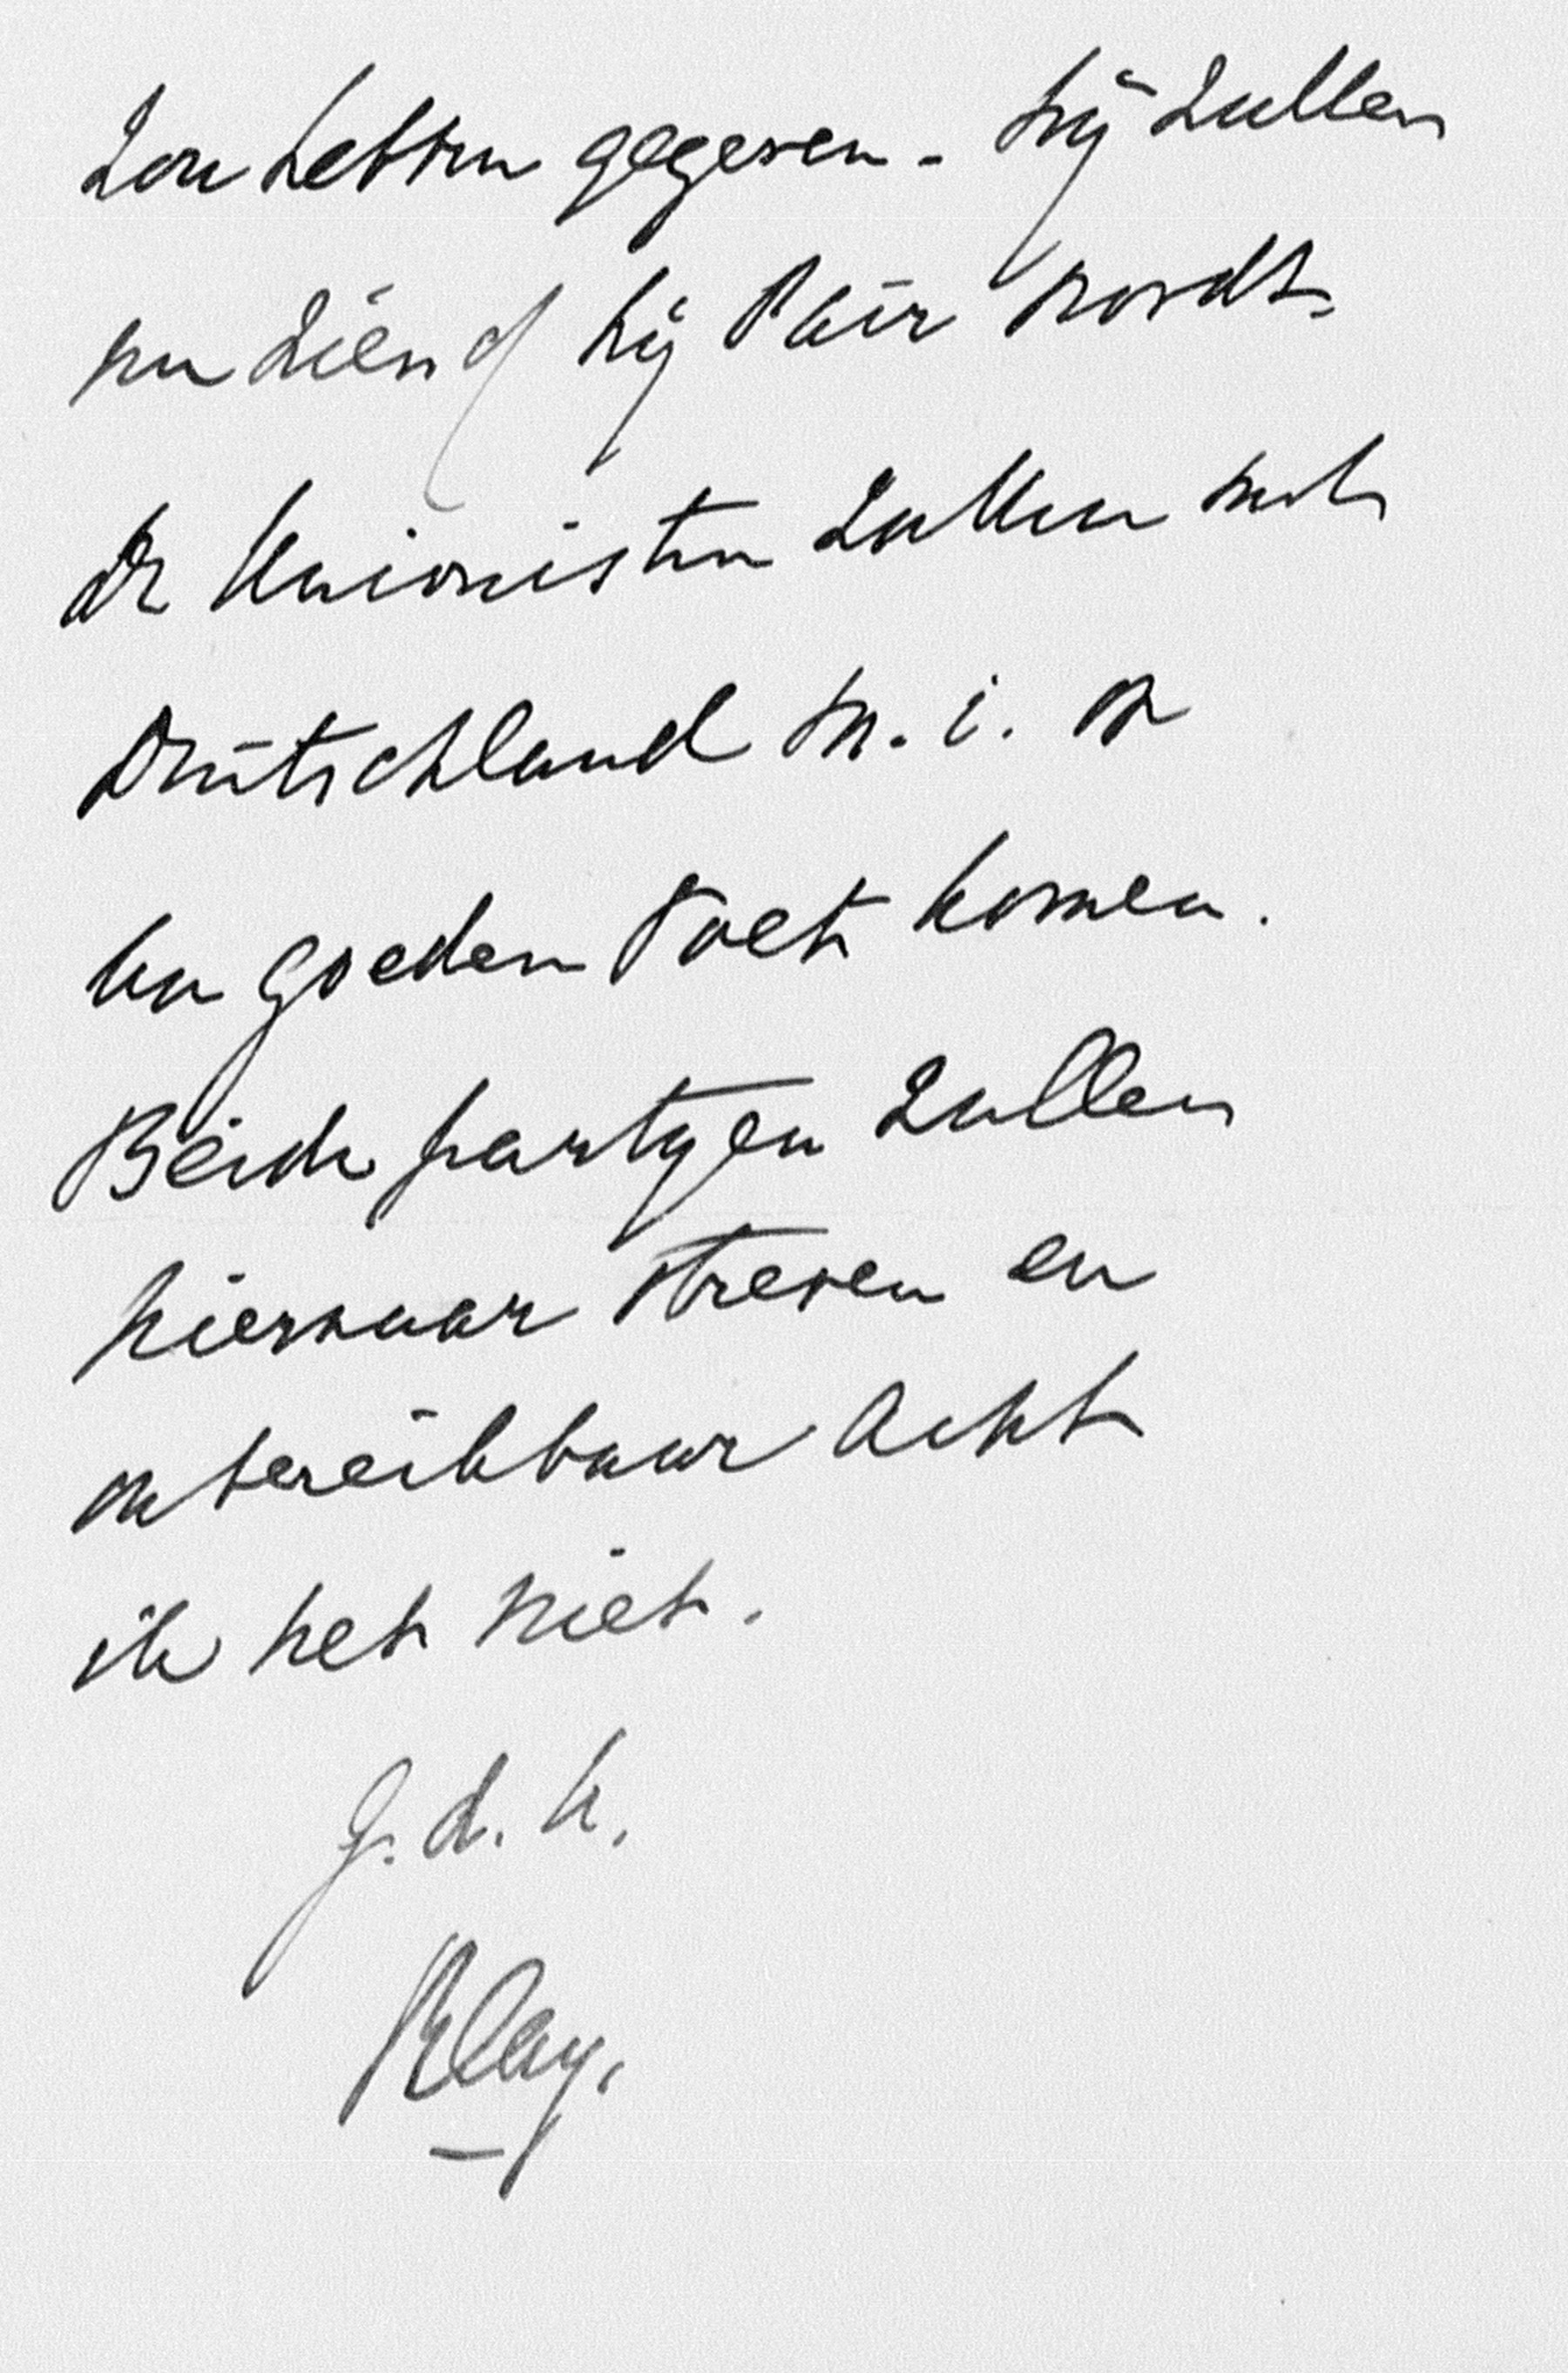 zou hebben gegeven - wij zullen
nu zien of hij Pair wordt.
De Unionisten zullen met
Deutschland m. i. op
een goeden voet komen.
Beide partijen zullen
hiernaar streven en
onbereikbaar acht
ik het niet.
t.